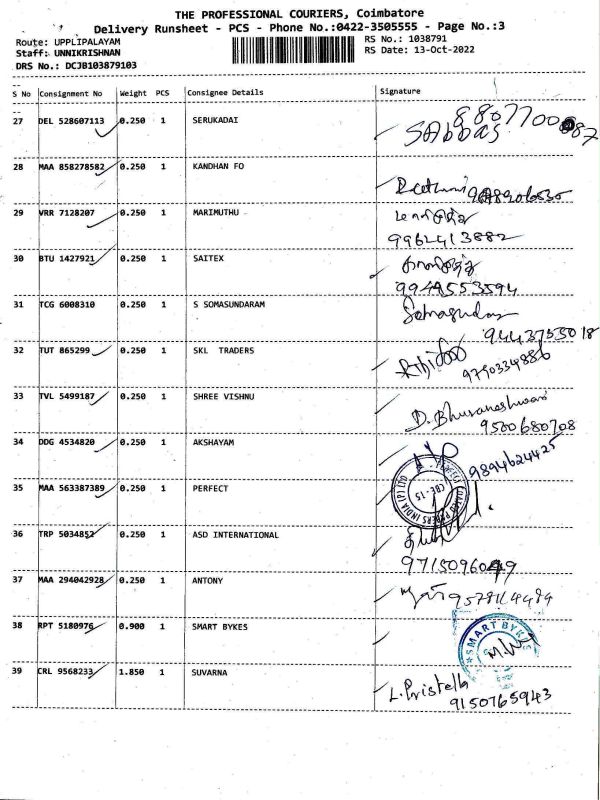 THE PROFESSIONAL COURIERS, Coimbatore
Delivery Runsheet - PCS - Phone No.:0422-3505555 - Page No.:3
Route: UPPLIPALAYAM
RS No.: 1038791
Staff: UNNIKRISHNAN
RS Date: 13-Oct-2022
DRS No.: DCJB103879103
S No Consignment No Weight PCS Consignee Details Signature
27 DEL 528607113 0.250 1 SERUKADAI
SAbbas
28 MAA 858278582 0.250 1 KANDHAN FO
29 VRR 7128207 0.250 1 MARIMUTHU
9962413882
30 BTU 1427921 0.250 1 SAITEX
9949553594
31 TCG 6008310 0.250 1 S SOMASUNDARAM
9443753018
32 TUT 865299 0.250 1 SKL TRADERS
9790334886
33 TVL 5499187 0.250 1 SHREE VISHNU
D. Bhuvaneshwari
9500680708
34 DDG 4534820 0.250 1 AKSHAYAM
9894624425
35 MAA 563387389 0.250 1 PERFECT
CBE-15
36 TRP 5034852 0.250 1 ASD INTERNATIONAL
9715096049
37 MAA 294042928 0.250 1 ANTONY
38 RPT 5180976 0.900 1 SMART BYKES
SMART BYKES
39 CRL 9568233 1.850 1 SUVARNA
L. Pristella
9150765943